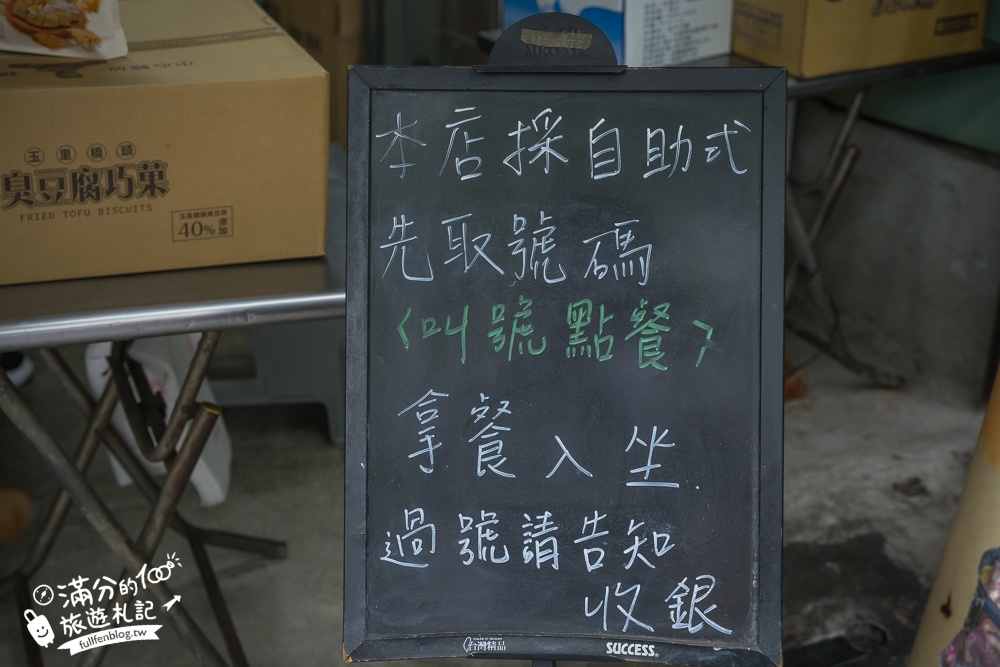 本店採自助式
先取號碼
<叫號點餐>
拿餐入坐.
過號請告知
收銀
台灣精品
SUCCESS
玉里橋頭
臭豆腐巧菓
FRIED TOFU BISCUITS
40%添加
滿分的100
旅遊札記
fullfenblog.tw